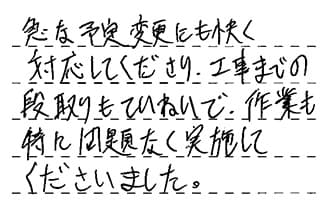 急な予定変更にも快く
対応してくださり、工事までの
段取りもていねいで、作業も
特に問題なく実施して
くださいました。